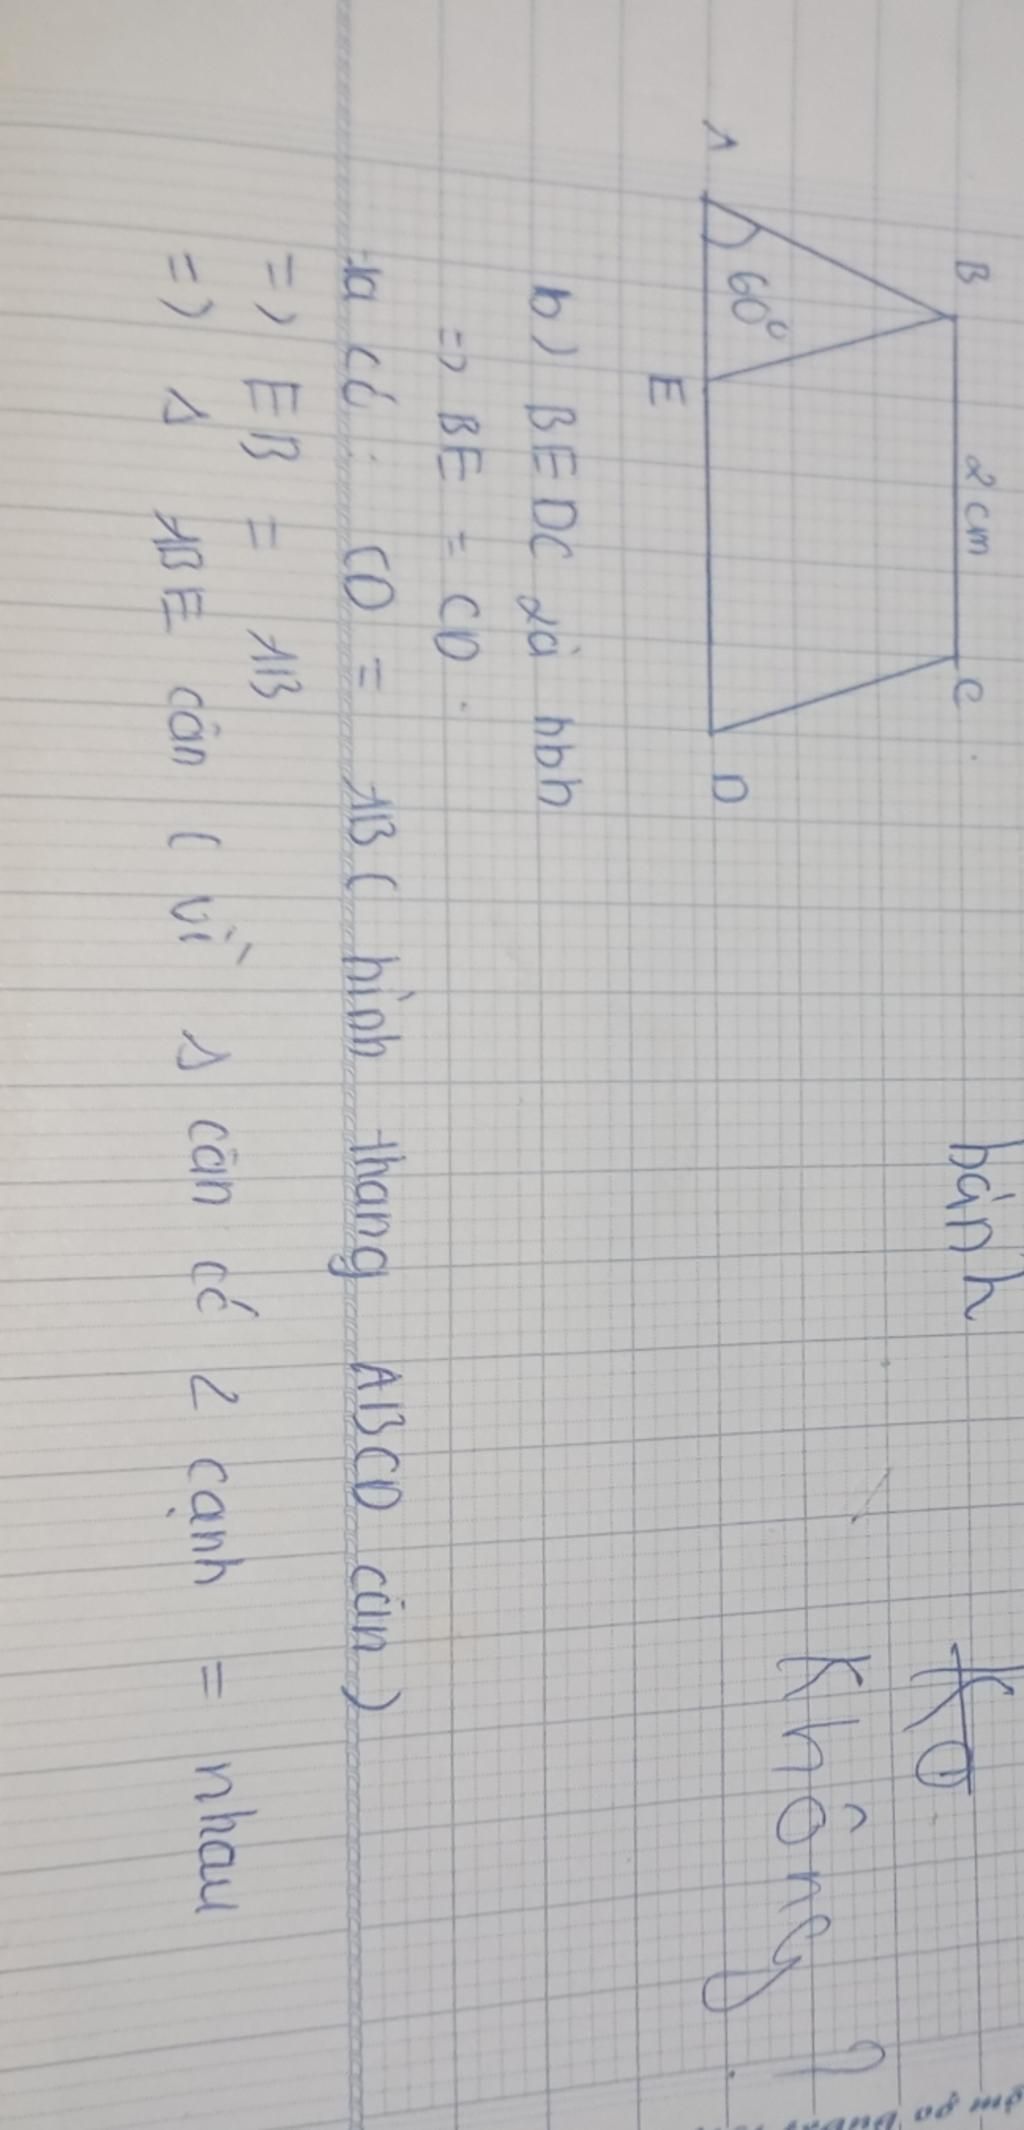 bánh
Không ?
B 2cm C
A 60° E D
b) BEDC là hbh
=> BE = CD.
ta có: CD = AB ( hình thang ABCD cân )
=> EB = AB
=> Δ ABE cân ( vì Δ cân có 2 cạnh = nhau